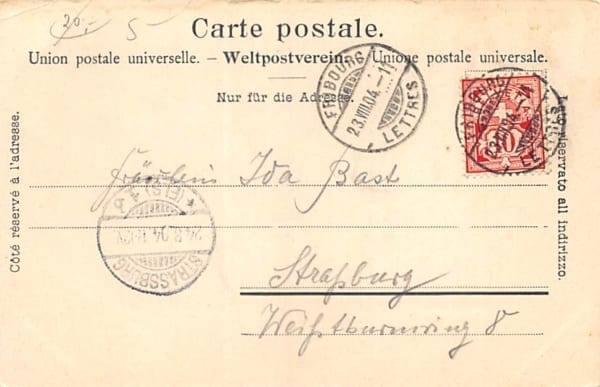 20.- 5-
Carte postale.
Union postale universelle. – Weltpostverein. – Unione postale universale.
Nur für die Adresse.
FRIBOURG
23.VIII.04.-11
LETTRES
FRIBOURG
23.VIII.04.-11
LETTRES
10
Côté réservé à l'adresse.
Lato riservato all indirizzo.
Fräulein Ida Bast
STRASSBURG
24.8.04.
(ELS) 1 b
Straßburg
Weißthurmring 8